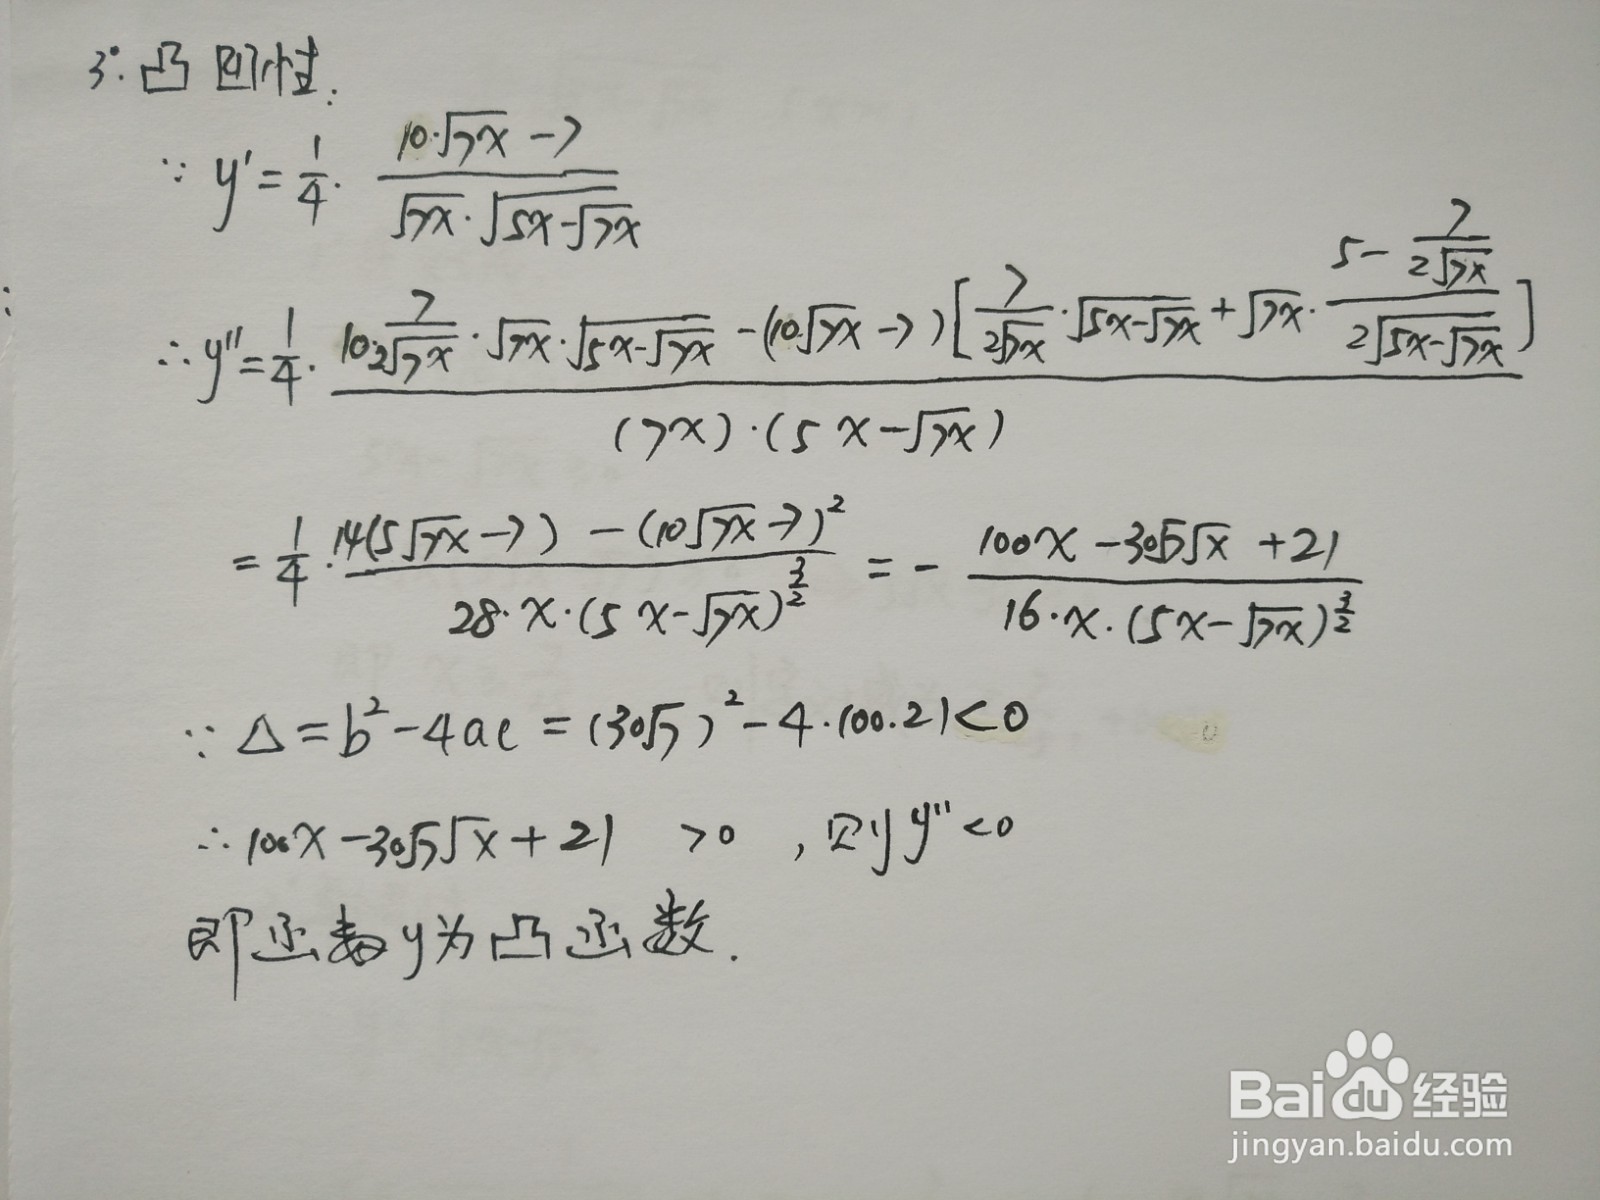 3°. 凸凹性:
∵ y' = 1/4 · (10·√7x - 7)/(√7x · √(5x-√7x))
∴ y'' = 1/4 · (10·7/(2√7x) · √7x · √(5x-√7x) - (10√7x - 7)[7/(2√7x) · √(5x-√7x) + √7x · (5 - 7/(2√7x))/(2√(5x-√7x))])/((7x)·(5x-√7x))
= 1/4 · (14(5√7x - 7) - (10√7x - 7)²)/(28·x·(5x-√7x)^(3/2)) = - (100x - 30√7√x + 21)/(16·x·(5x-√7x)^(3/2))
∵ △ = b² - 4ac = (30√7)² - 4·100·21 < 0
∴ 100x - 30√7√x + 21 > 0 , 则 y'' < 0
即函数y为凸函数.
Baidu经验
jingyan.baidu.com